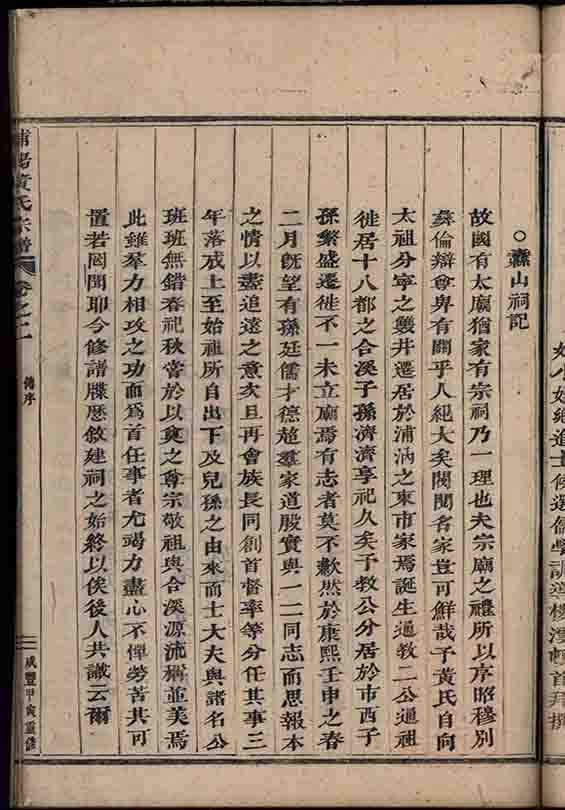 始小姪鄉進士候選儒學訓導樓漢頓首拜撰
○纛山祠記
故國有太廟猶家有宗祠乃一理也夫宗廟之禮所以序昭穆別
彛倫辯尊卑有關乎人紀大矣閥閱名家豈可鮮哉予黃氏自向
太祖分寧之雙井遷居於浦汭之東市家焉誕生通教二公通祖
徙居十八都之合溪子孫濟濟享祀久矣予教公分居於市西子
孫繁盛遷徙不一未立廟焉有志者莫不歉然於康熙壬申之春
二月旣望有孫廷儒才德超羣家道殷實與一二同志而思報本
之情以盡追遠之意爰且再會族長同創首督率等分任其事三
年落成上至始祖所自出下及兒孫之由來而士大夫與諸名公
班班無錯春祀秋嘗於以奠之尊宗敬祖與合溪源流稱並美焉
此雖羣力相攻之功而爲首任事者尤竭力盡心不憚勞苦其可
置若罔聞耶今修譜牒歷敘建祠之始終以俟後人共識云爾
浦陽黃氏宗譜
卷之二
傳序
二
咸豐甲寅重修